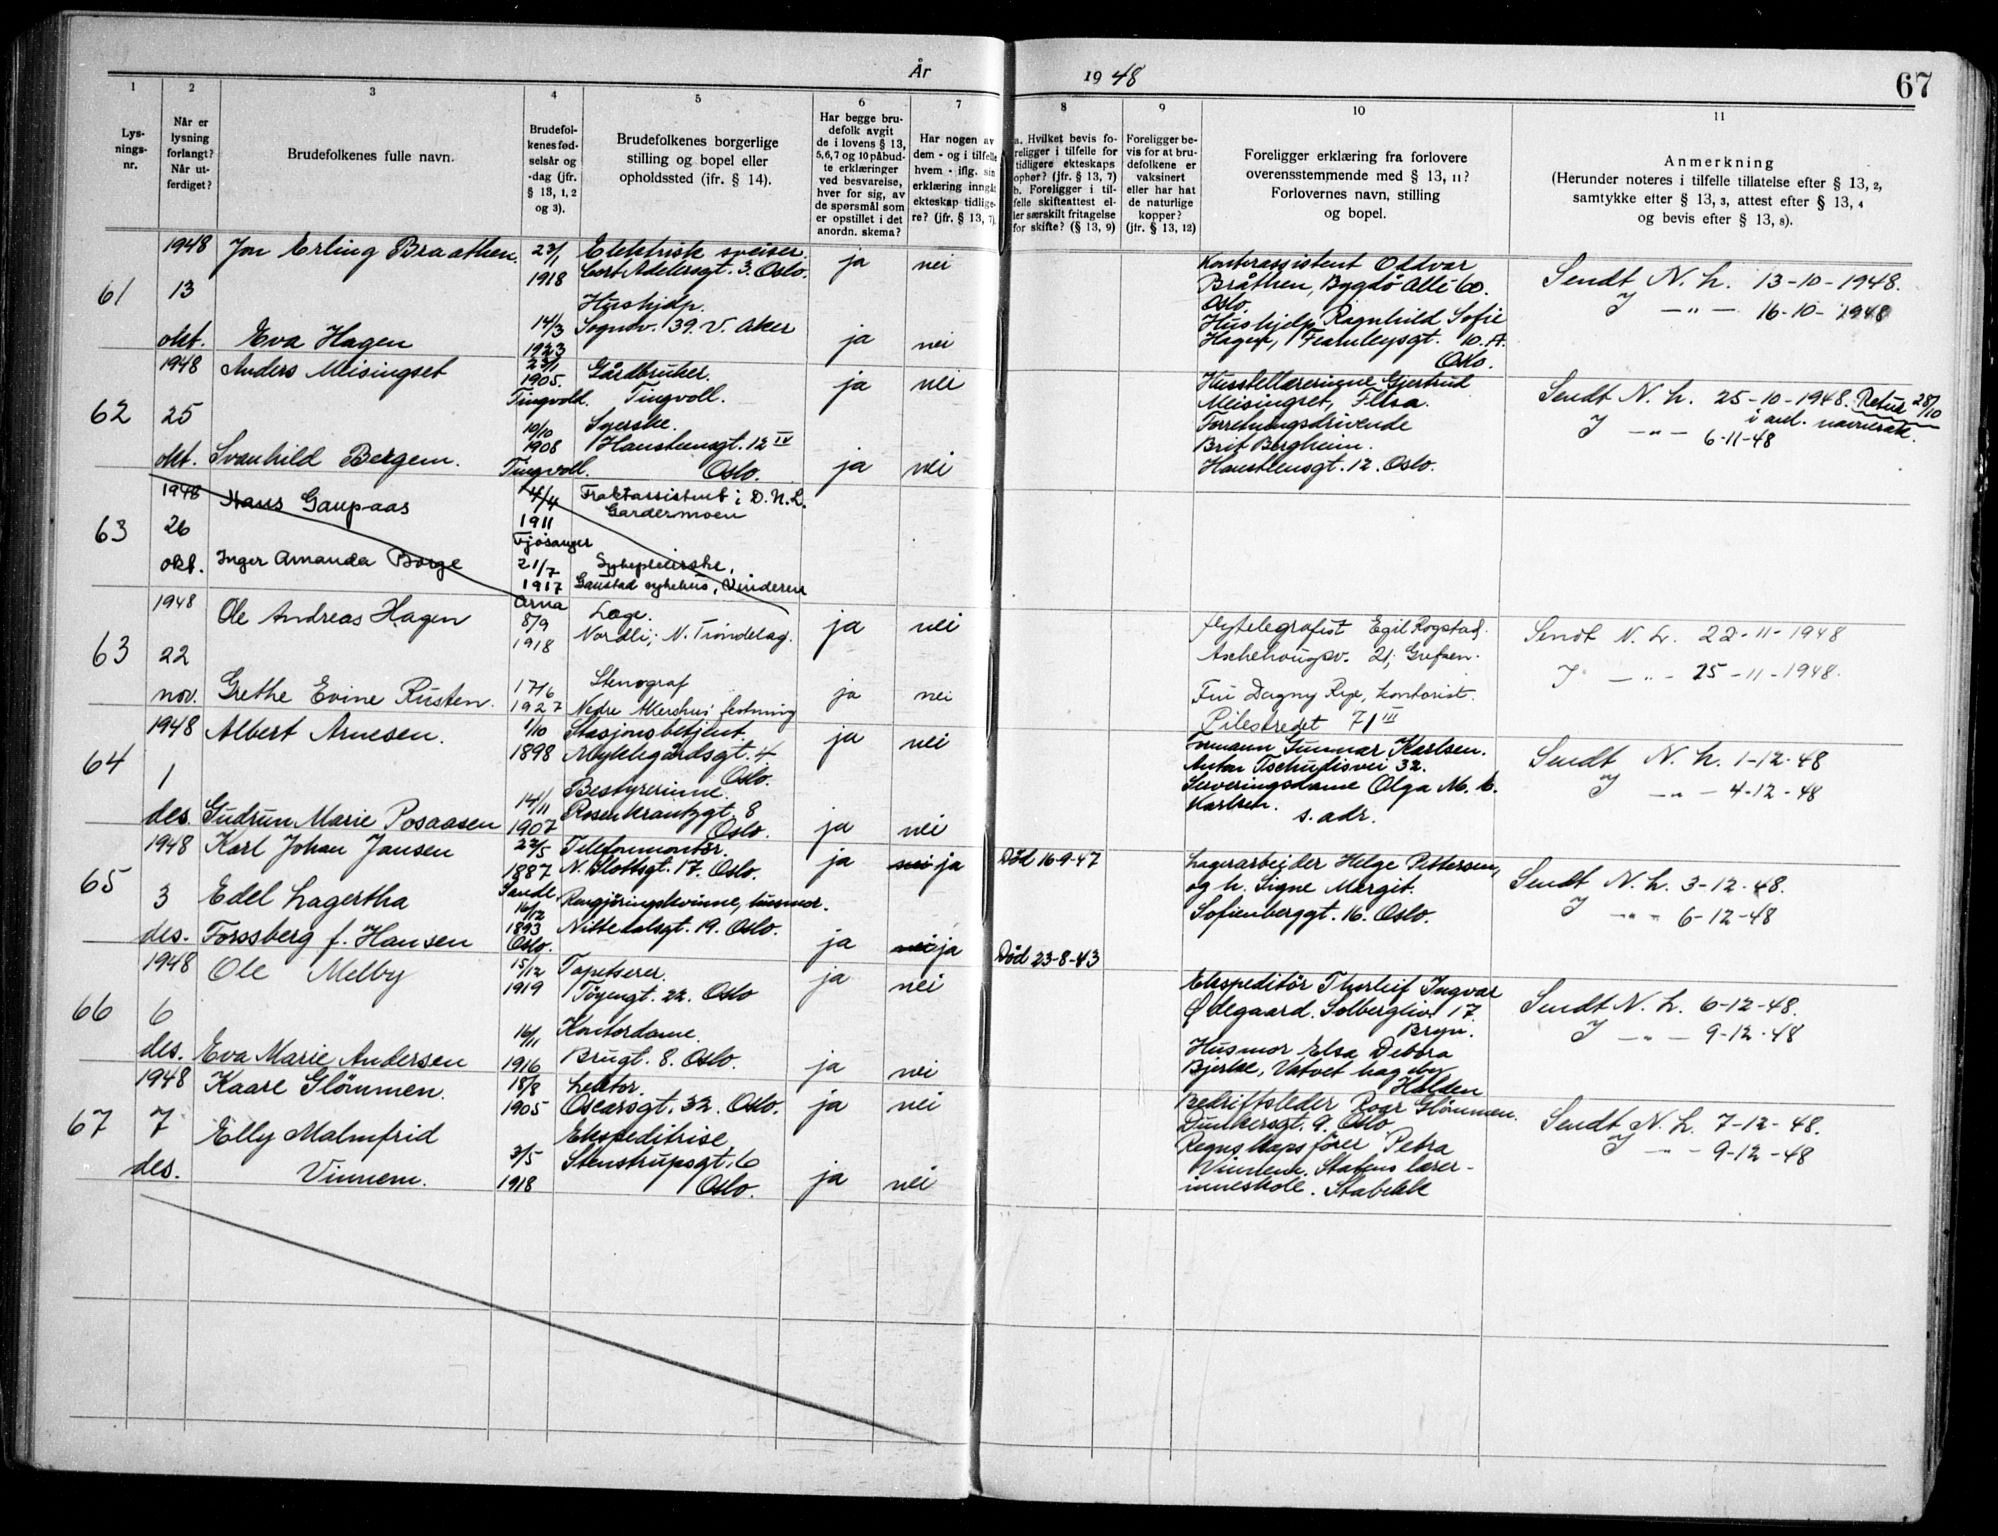 År 1948
67
1
2
3
4
5
6
7
8
9
10
11
Lys-
nings-
nr.
Når er
lysning
forlangt?
Når ut-
ferdiget?
Brudefolkenes fulle navn.
Brudefol-
kenes fød-
selsår og
-dag (jfr.
§ 13, 1, 2
og 3).
Brudefolkenes borgerlige
stilling og bopel eller
opholdssted (ifr. § 14).
Har begge bru-
defolk avgit
de i lovens § 13,
5, 6, 7 og 10 påbud-
te erklæringer
ved besvarelse,
hver for sig, av
de spørsmål som
er opstillet i det
anordn. skema?
Har nogen av
dem - og i tilfelle
hvem - iflg. sin
erklæring inngåt
ekteskap tidlige-
re? (jfr. § 13, 7).
a. Hvilket bevis fo-
religger i tilfelle for
tidligere ekteskaps
ophør? (jfr. § 13, 7)
b. Foreligger i til-
felle skifteattest el-
ler særskilt fritagelse
for skifte? (§ 13, 9)
Foreligger be-
vis for at bru-
defolkene er
vaksinert
eller har hat
de naturlige
kopper?
(jfr. § 13, 12)
Foreligger erklæring fra forlovere
overensstemmende med § 13, 11?
Forlovernes navn, stilling
og bopel.
Anmerkning
(Herunder noteres i tilfelle tillatelse efter § 13, 2,
samtykke efter § 13, 3, attest efter § 13, 4
og bevis efter § 13, 8).
61
1948
13
okt.
Jon Erling Braathen.
23/1
1918
Elektrisk sveiser.
Cort Adelersgt. 3. Oslo.
ja
nei
Eva Hagen
14/3
1923
Hushjelp.
Sognsv. 39. V. Aker
ja
nei
Kontorassistent Oddvar
Bråthen, Bygdö Allé 60.
Oslo.
Hushjelp Ragnhild Sofie
Hagen, Fearnleysgt. 10. A.
Oslo.
Sendt N. L. 13-10-1948.
J — " — 16-10-1948
62
1948
25
okt.
Anders Meisingset
23/1
1905.
Tingvold.
Gårdbruker.
Tingvoll.
ja
nei
Svanhild Bergem.
10/10
1908
Tingvoll.
Syerske.
Hansteensgt. 12 IV
Oslo.
ja
nei
Husstellærerinne Gjertrud
Meisingset,
Forretningsdrivende
Brit Bergheim.
Hansteensgt. 12. Oslo.
Sendt N. L. 25-10-1948. Retur 28/10
i anl. navnesak.
J — " — 6-11-48
63
1948
26
okt.
Hans Gaupaas
4/4
1911
Fjösanger
Fraktassistent i D. N. L.
Gardermoen
Inger Amanda Borge
21/7
1917
Arna
Sykepleierske,
Gaustad sykehus, Vinderen
63
1948
22
nov.
Ole Andreas Hagen
8/9
1918
Lege.
Nordli, N. Tröndelag.
ja
nei
Grethe Evine Rusten.
17/6
1927
Stenograf
Nedre Akershus festning
ja
nei
flytelegrafist Egil Rogstad.
Aschehougsv. 21; Grefsen.
Fru Dagny Rye, kontorist.
Pilestredet 71 III
Sendt N. L. 22-11-1948
J — " — 25-11-1948.
64
1948
1
des.
Albert Arnesen.
1/10
1898
Stasjonsbetjent.
Myklegårdsgt. 4.
Oslo.
ja
nei
Gudrun Marie Posaasen
14/11
1907
Bestyrerinne.
Rosenkrantzgt 8
Oslo.
ja
nei
Formann Gunnar Karlsen.
Anton Tschudisvei 32.
Serveringsdame Olga M. K.
Karlsen.
s. adr.
Sendt N. L. 1-12-48
J — " — 4-12-48
65
1948
3
des.
Karl Johan Jansen
22/5
1887
Sande.
Telefonmontör.
N. Slottsgt. 17. Oslo.
ja
nei ja
Död 16-9-47
Edel Lagertha
Forssberg f. Hansen
16/12
1893
Oslo.
Rengjöringskvinne, husmor.
Nittedalsgt. 19. Oslo.
ja
nei ja
Död 23-8-43
Lagerarbejder Helge Pettersen,
og h. Signe Margit.
Sofienberggt. 16. Oslo.
Sendt N. L. 3-12-48.
J — " — 6-12-48
66
1948
6
des.
Ole Melby
15/12
1919
Tapetserer.
Töyengt. 22. Oslo
ja
nei
Eva Marie Andersen
16/1
1916
Kontordame.
Brugt. 8. Oslo.
ja
nei
Ekspeditör Thorleif Ingvar
Ødegaard. Solbergliv. 17.
Bryn.
Husmor Elsa Debora
Bjerke, Vatvet hageby
Halden
Sendt N. L. 6-12-48.
J — " — 9-12-48
67
1948
7
des.
Kaare Glömmen.
18/8
1905
Lektor.
Oscarsgt. 32. Oslo.
ja
nei
Elly Malmfrid
Vinnem.
3/5
1918
Ekspeditrise
Stenstrupsgt. 6
Oslo.
ja
nei
Bedriftsleder Roar Glömmen.
Dunkersgt. 9. Oslo
Regnskapsförer Petra
Vinnem. Statens lærer-
inneskole. Stabekk
Sendt N. L. 7-12-48.
J — " — 9-12-48